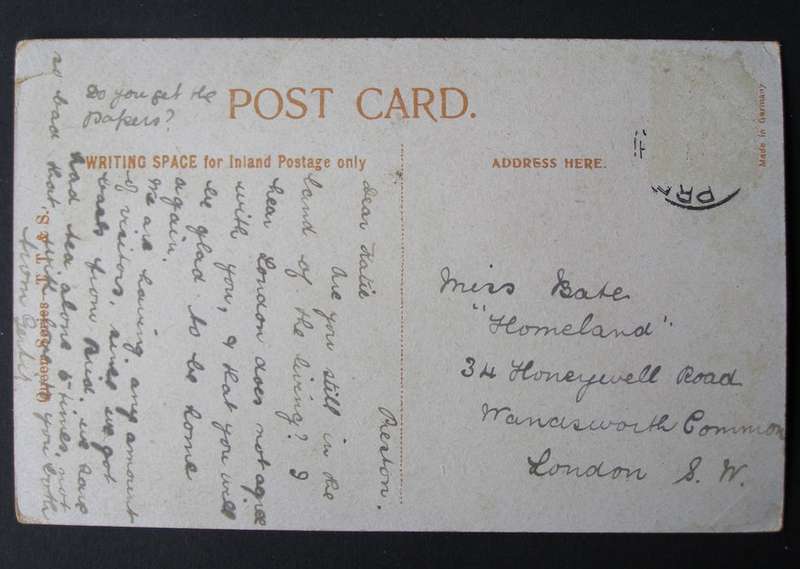 Do you get the
Papers?
POST CARD.
WRITING SPACE for Inland Postage only
ADDRESS HERE.
Made in Germany
PR
Preston.
Dear Katie
Are you still in the
land of the living? I
hear London does not agree
with you, & that you will
be glad to be home
again.
We are having any amount
of visitors, since we got
from and we have
had tea alone 6 times, not
so bad that,
from
Miss Bate
"Homeland"
34 Honeywell Road
Wandsworth Common
London S. W.